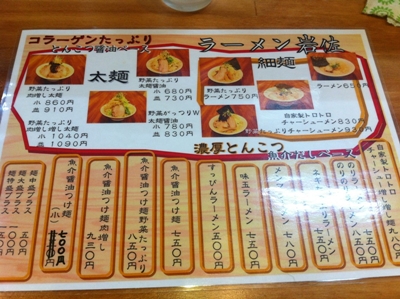 コラーゲンたっぷり
とんこつ醤油ベース
ラーメン岩佐
太麺
細麺
野菜たっぷり
肉増し太麺
小 860円
並 910円
野菜たっぷり
太麺醤油
小 680円
並 730円
野菜たっぷり
ラーメン750円
ラーメン650円
野菜たっぷりW
肉増し太麺
小 1040円
並 1090円
野菜がっつりW
太麺醤油
小 780円
並 830円
自家製トロトロ
チャーシューメン830円
野菜たっぷりチャーシューメン930円
濃厚とんこつ
魚介だしベース
自家製トロトロ
チャーシューメン
のりラーメン
ネギラーメン
味玉ラーメン 七五〇円
すっぴんラーメン 五〇〇円
魚介醤油つけ麺 七五〇円
魚介醤油つけ麺野菜たっぷり 八五〇円
魚介醤油つけ麺肉増し 九三〇円
魚介醤油つけ麺(小) 七〇〇円
麺中盛プラス
麺大盛プラス
麺特盛プラス